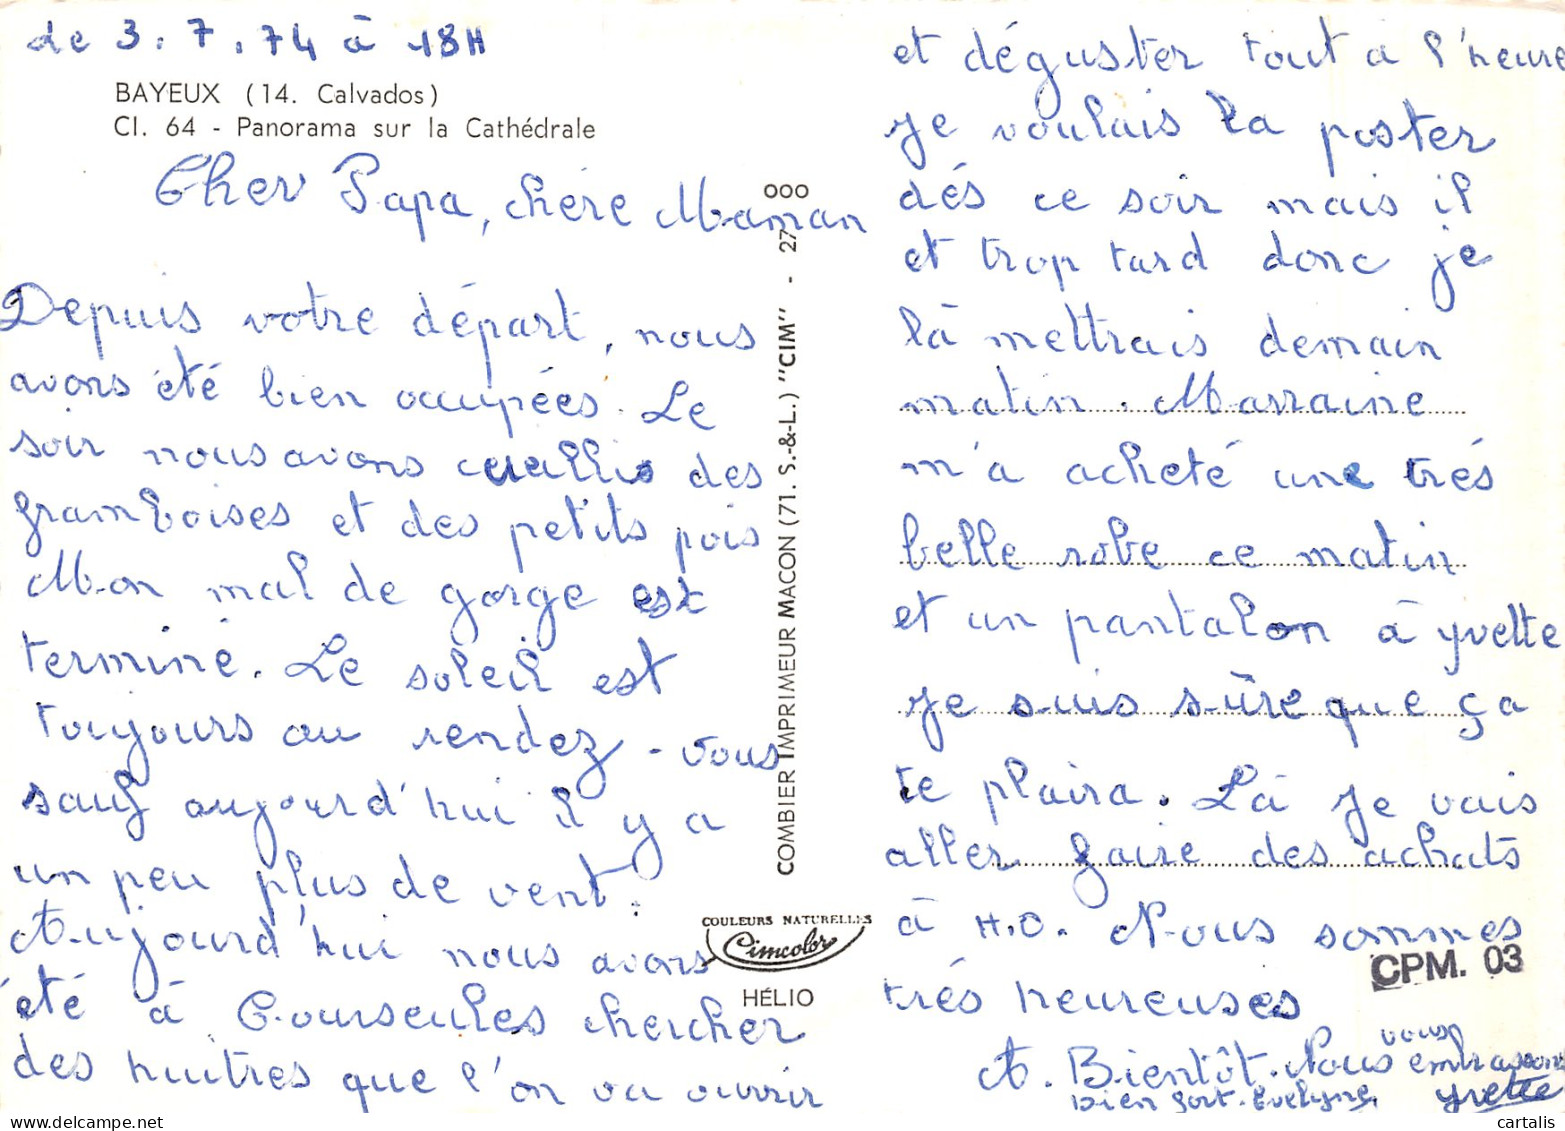 de 3.7.74 à 18H
BAYEUX (14. Calvados)
Cl. 64 - Panorama sur la Cathédrale
Cher Papa, chère Maman
Depuis votre départ, nous
avons été bien occupées. Le
soir nous avons cueillis des
framboises et des petits pois
Mon mal de gorge est
terminé. Le soleil est
toujours au rendez-vous
sauf aujourd'hui il y a
un peu plus de vent.
Aujourd'hui nous avons
été à Courseulles chercher
des huitres que l'on va ouvrir
et déguster tout a l'heure
je voulais la poster
dés ce soir mais il
et trop tard donc je
là mettrais demain
matin. Marraine
m'a acheté une trés
belle robe ce matin
et un pantalon à yvette
je suis sûre que ça
te plaira. Là je vais
aller faire des achats
à H.O. Nous sommes
trés heureuses
A. Bientôt. Nous vous embrassons
bien fort. Evelyne, yvette
COMBIER IMPRIMEUR MACON (71. S.-&-L.) "CIM" - 27 000
COULEURS NATURELLES
Cimcolor
HÉLIO
CPM. 03
https://www.cartalis.com
cartalis